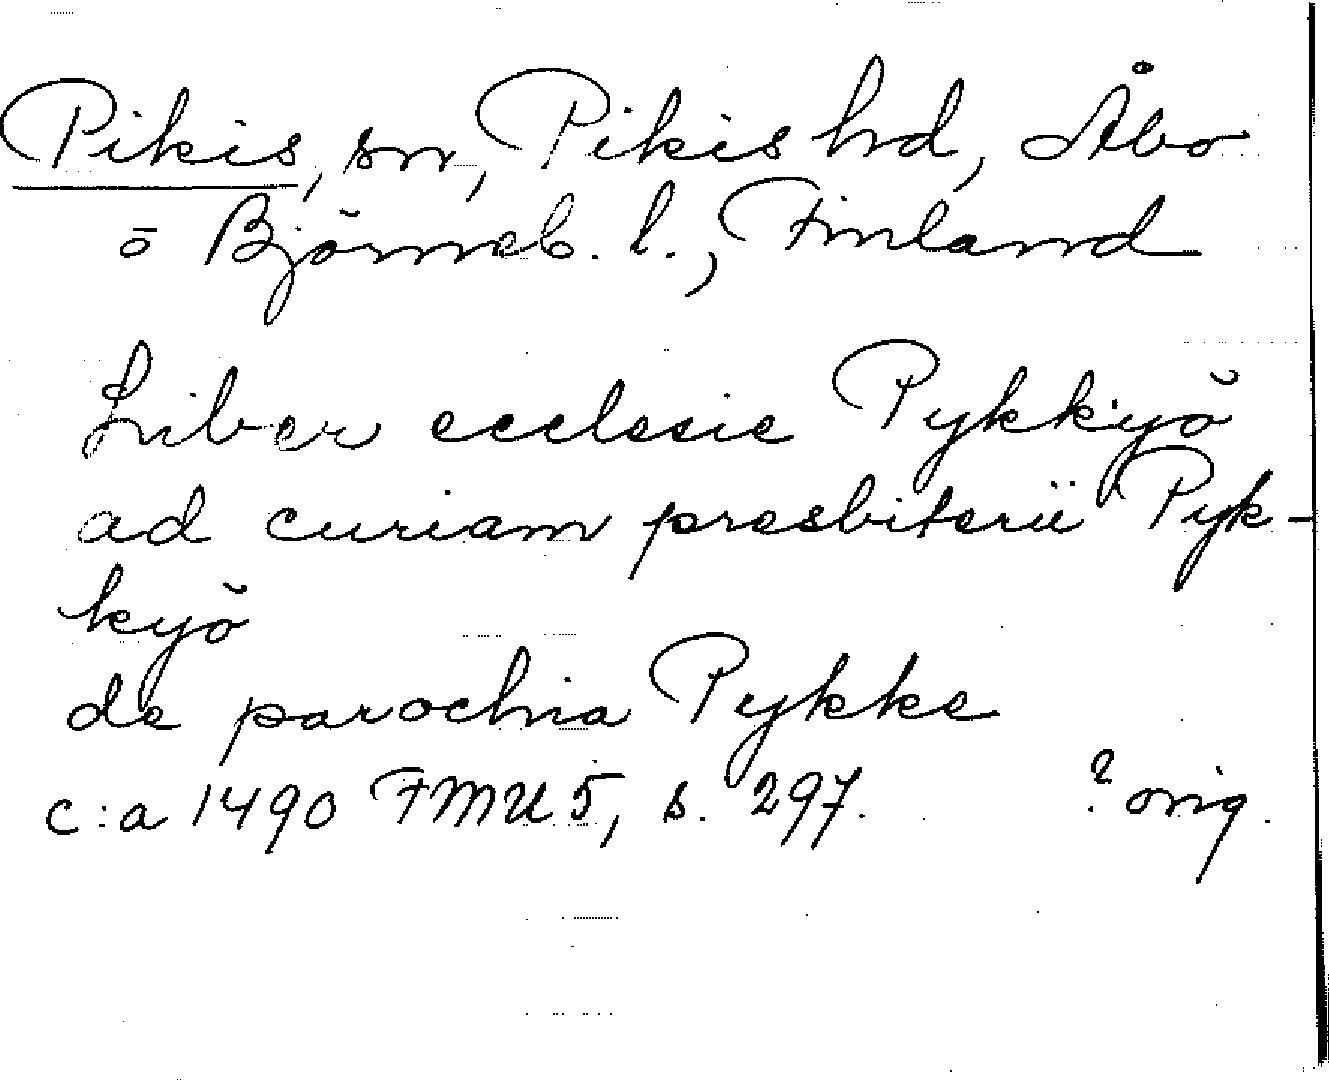 Pikis, sn, Pikis hd, Åbo
o Björneb. l., Finland
Liber ecclesie Pykkyö
ad curiam presbiterii Pyk-
kyö
de parochia Pykke
c:a 1490 FMU 5, s. 297. ? orig.